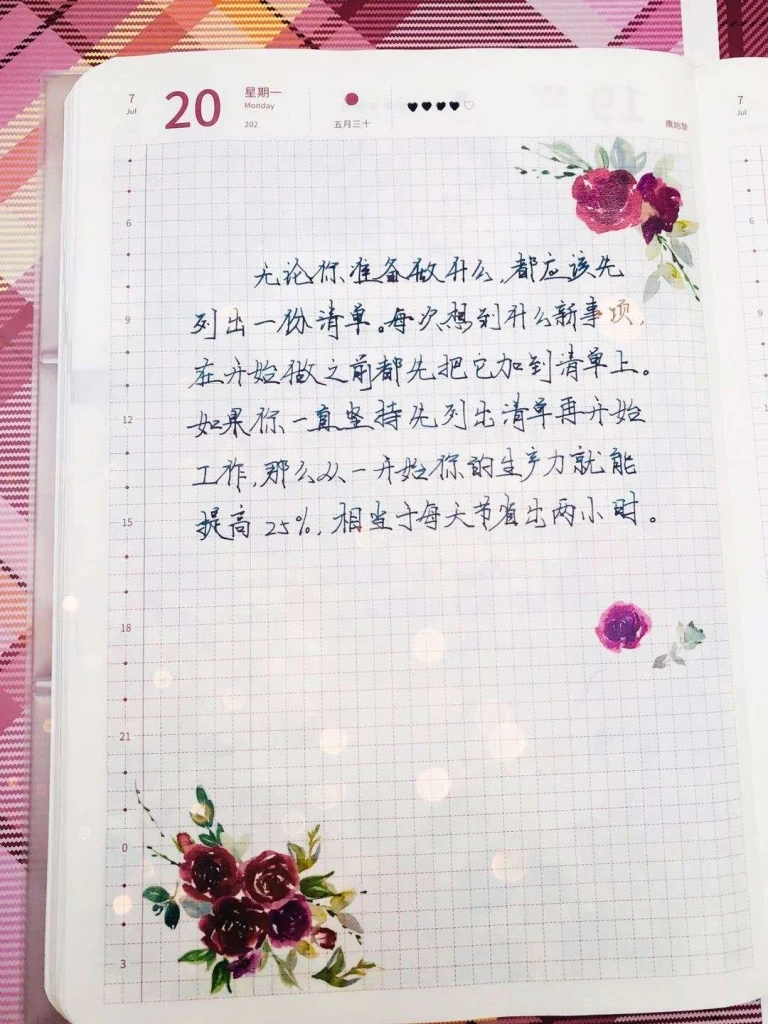 7
Jul
20
星期一
Monday
202
五月三十
鹰始挚
7
Jul
无论你准备做什么，都应该先
列出一份清单。每次想到什么新事项，
在开始做之前都先把它加到清单上。
如果你一直坚持先列出清单再开始
工作，那么从一开始你的生产力就能
提高25%，相当于每天节省出两小时。
6
9
12
15
18
21
0
3
6
9